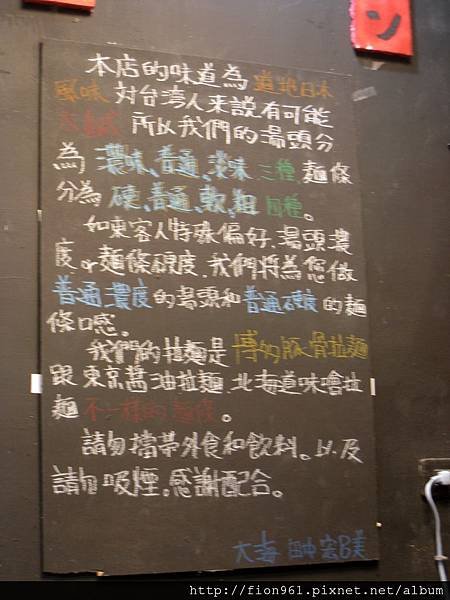 ン
本店的味道為道地日本
風味 对台湾人来説有可能
太鹹 所以我們的湯頭分
為 濃味、普通、淡味 三種，麵條
分為硬、普通、軟、粗 四種。
如果客人特殊偏好，湯頭濃
度or麵條硬度，我們將為您做
普通濃度的湯頭和普通硬度的麵
條口感。
我們的拉麵是博多豚骨拉麵
跟東京醬油拉麵，北海道味噌拉
麵 不一樣的麵條。
請勿攜帶外食和飲料。以及
請勿吸煙。感謝配合。
大海 田中
http://fion961.pixnet.net/album